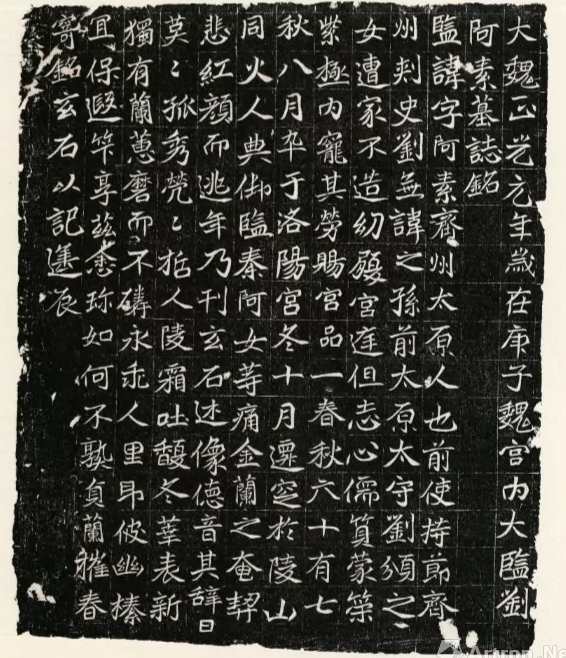 大魏正光元年歲在庚子魏宮內大監劉
阿素墓誌銘
監諱字阿素齊州太原人也前使持節齊
州刾史劉無諱之孫前太原太守劉頒之
女遭家不造幼履宮庭但志心儒質蒙策
紫極內寵其勞賜宮品一春秋六十有七
秋八月卒于洛陽宮冬十月遷窆於陵山
同火人典御監秦阿女等痛金蘭之奄契
悲紅顏而逃年乃刊玄石述像德音其辭曰
莫〻孤秀煢〻哲人陵霜吐馥冬華表新
獨有蘭蕙磨而不磷永乖人里即彼幽榛
宜保遐笇享茲悆珍如何不熟貞蘭摧春
寄銘玄石以記遙辰